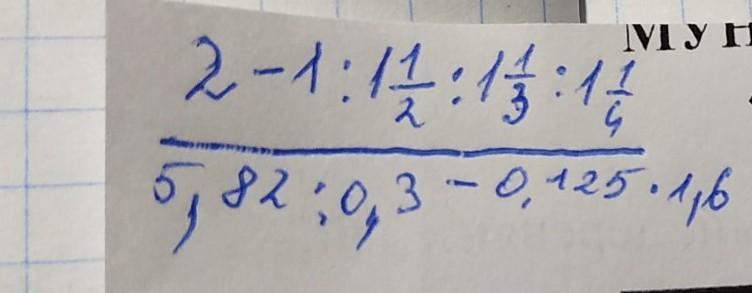 МУН
2 - 1 : 1 1/2 : 1 1/3 : 1 1/4
5,82 : 0,3 - 0,125 · 1,6